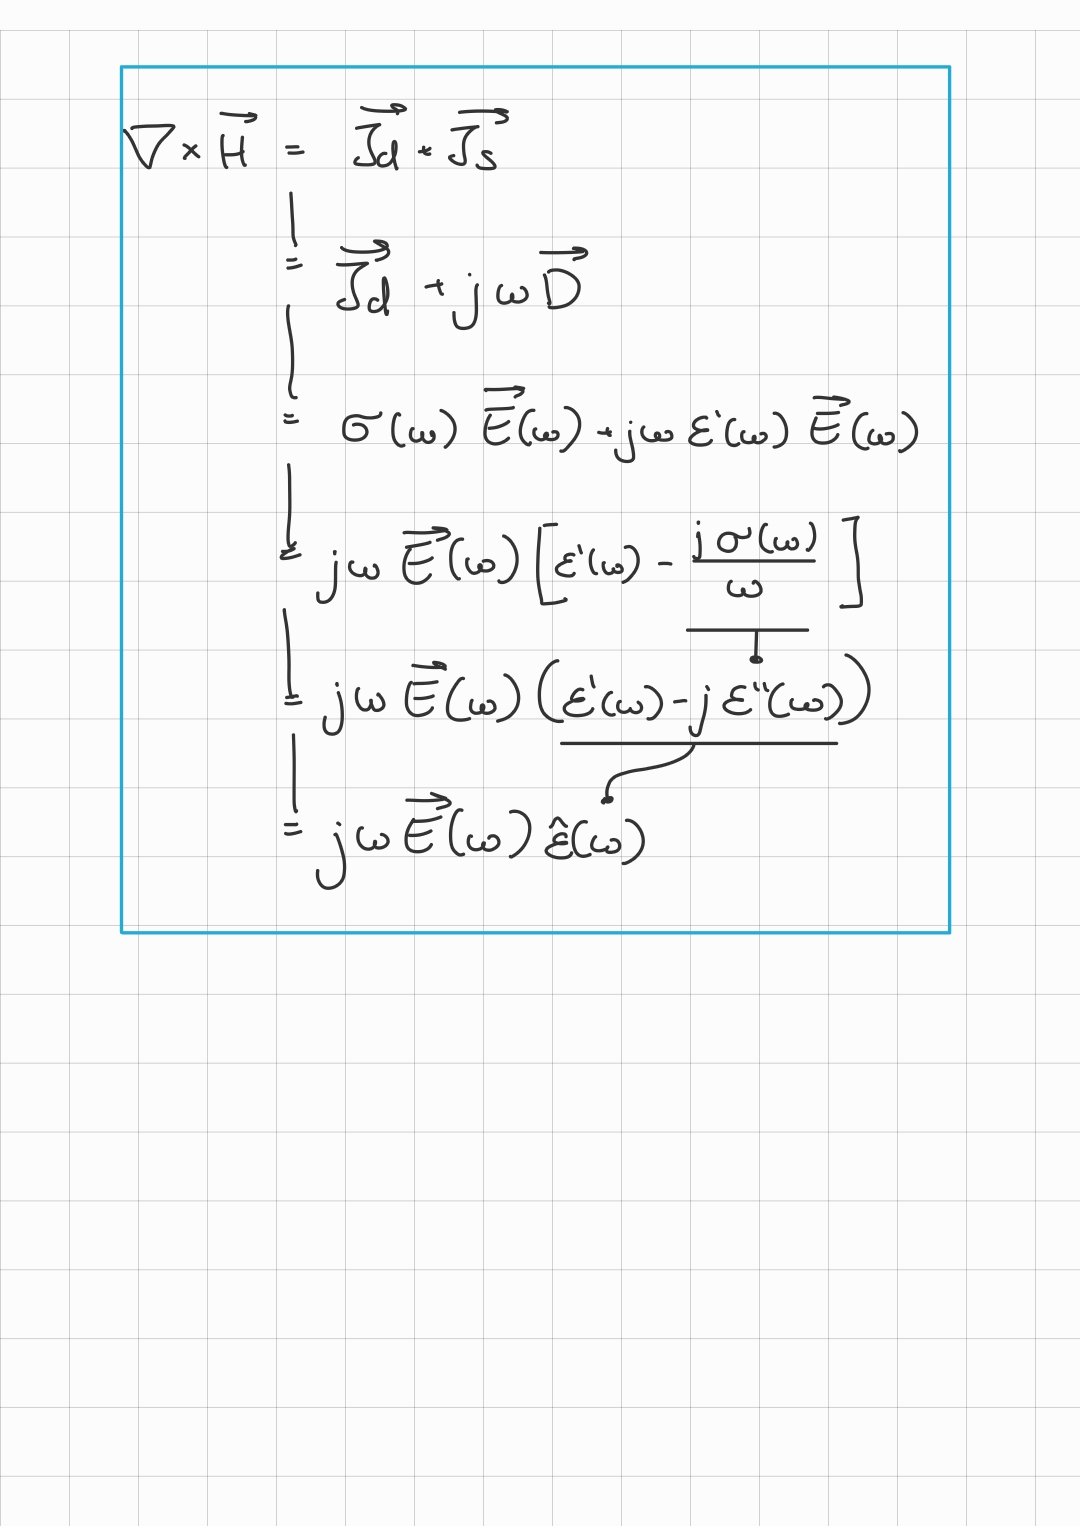 ∇ × H⃗ = J⃗d + J⃗s
= J⃗d + jωD⃗
= σ(ω) E⃗(ω) + jω ε'(ω) E⃗(ω)
= jω E⃗(ω) [ε'(ω) - jσ(ω)/ω]
= jω E⃗(ω) (ε'(ω) - j ε''(ω))
= jω E⃗(ω) ε̂(ω)